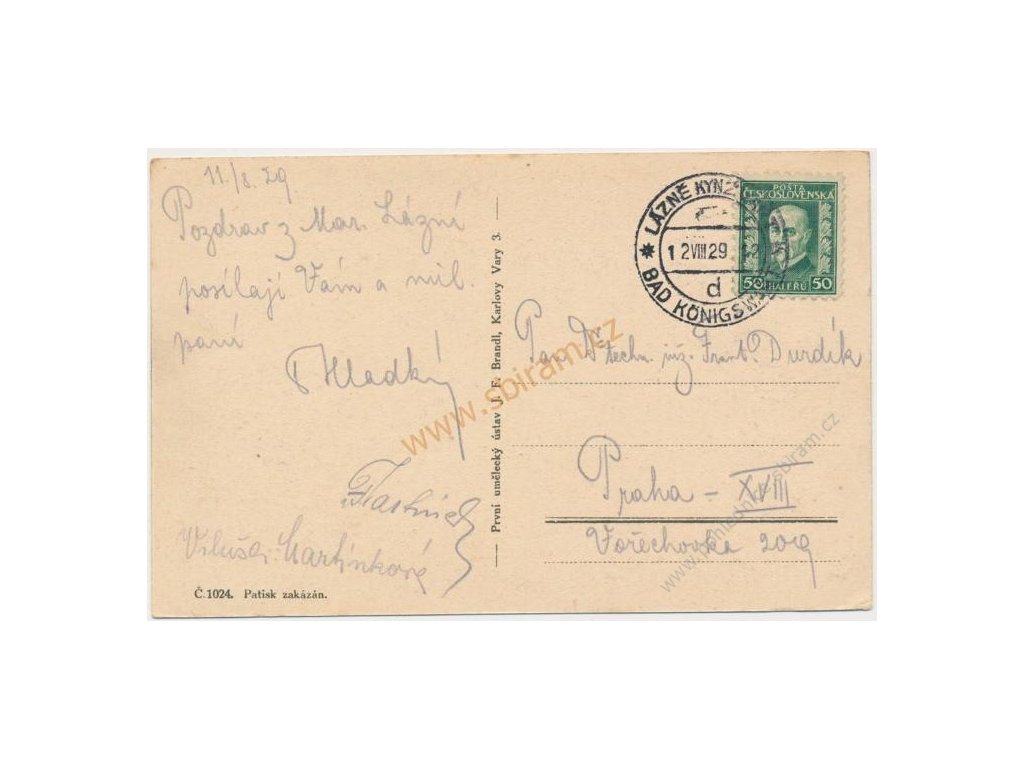 11./8. 29.
Pozdrav z Mar. Lázní
posílají Vám a mil.
paní
Hladký
Martínková
Č.1024. Patisk zakázán.
První umělecký ústav J. F. Brandl, Karlovy Vary 3.
LÁZNĚ KYNŽ
12 VIII 29
d
BAD KÖNIGSW
POŠTA
ČESKOSLOVENSKÁ
50 HALÉŘŮ 50
Pan Dr techn. inž. Frant. Durdík
Praha – XVIII
Vořechovka 209
www.sbiram.cz